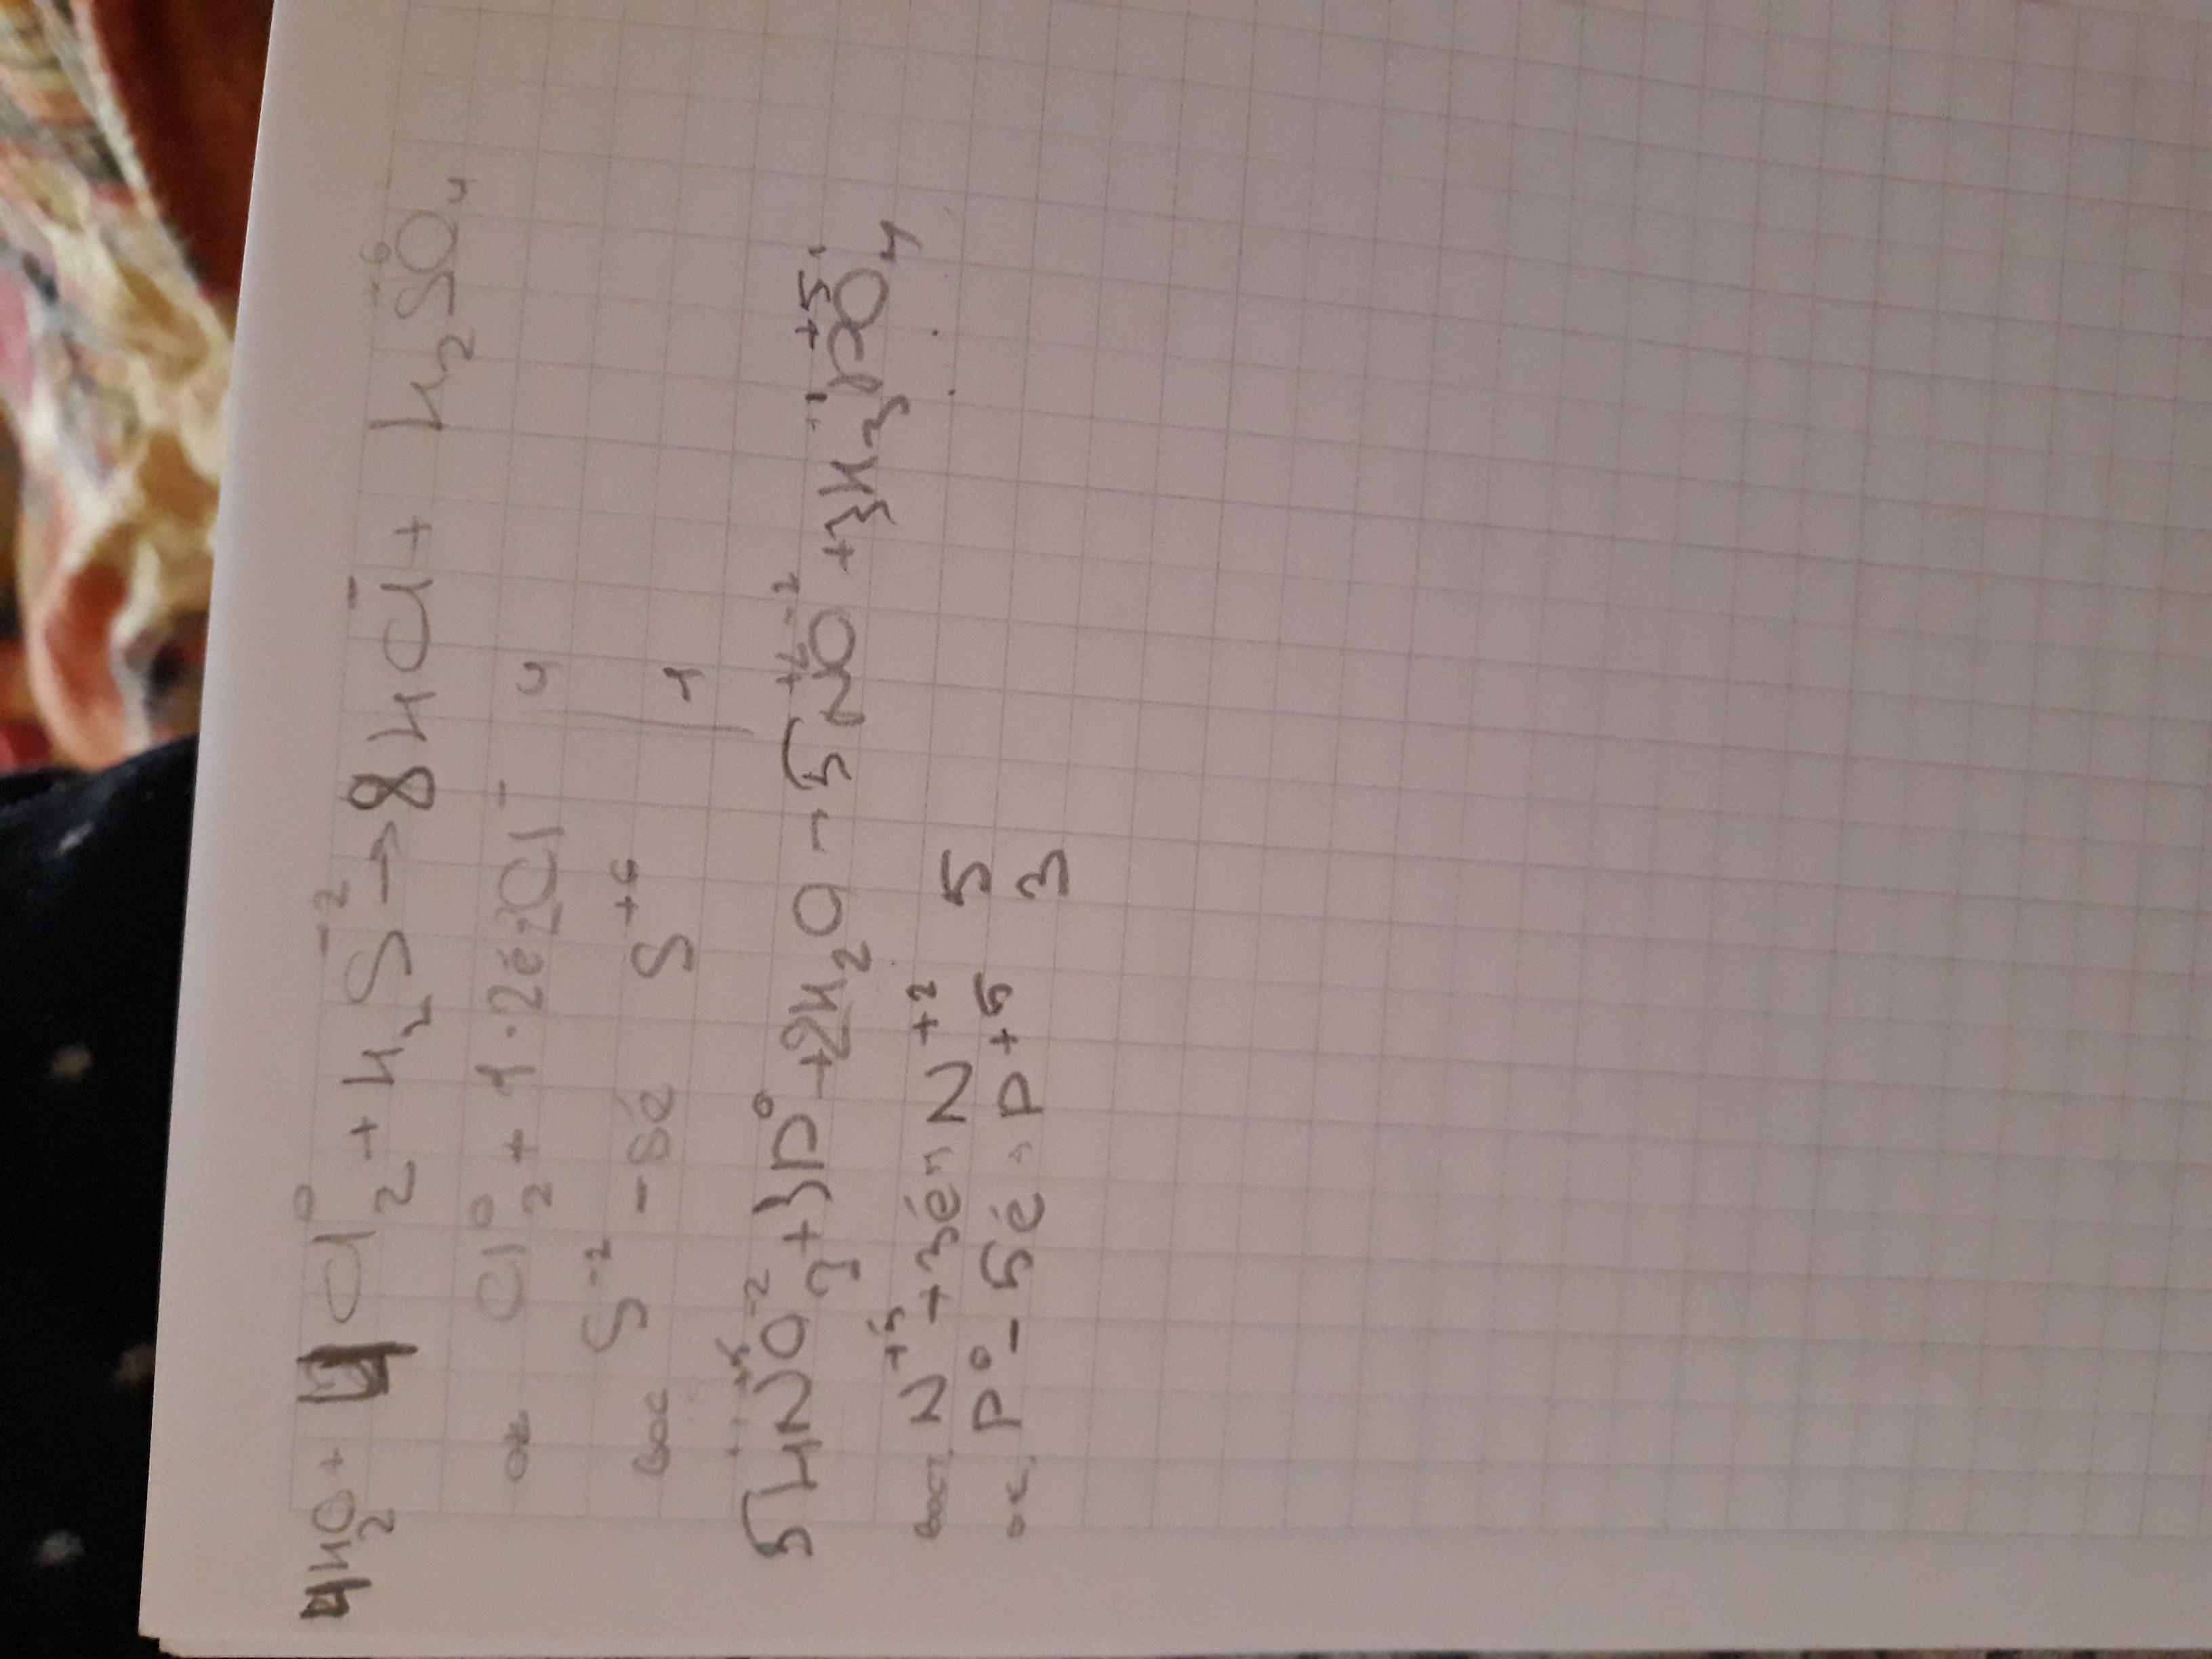 4H₂O + 4Cl₂⁰ + H₂S⁻² → 8HCl⁻ + H₂SO₄⁺⁶
ок Cl₂⁰ + 1·2ē 2Cl⁻ | 4
S⁻² - 8ē S⁺⁶ | 1
вос
5HN⁺⁵O₃⁻² + 3P⁰ + 2H₂O → 5N⁺²O⁻² + 3H₃⁺¹P⁺⁵O₄
вост. N⁺⁵ + 3ē → N⁺² 5
ок. P⁰ - 5ē → P⁺⁵ 3